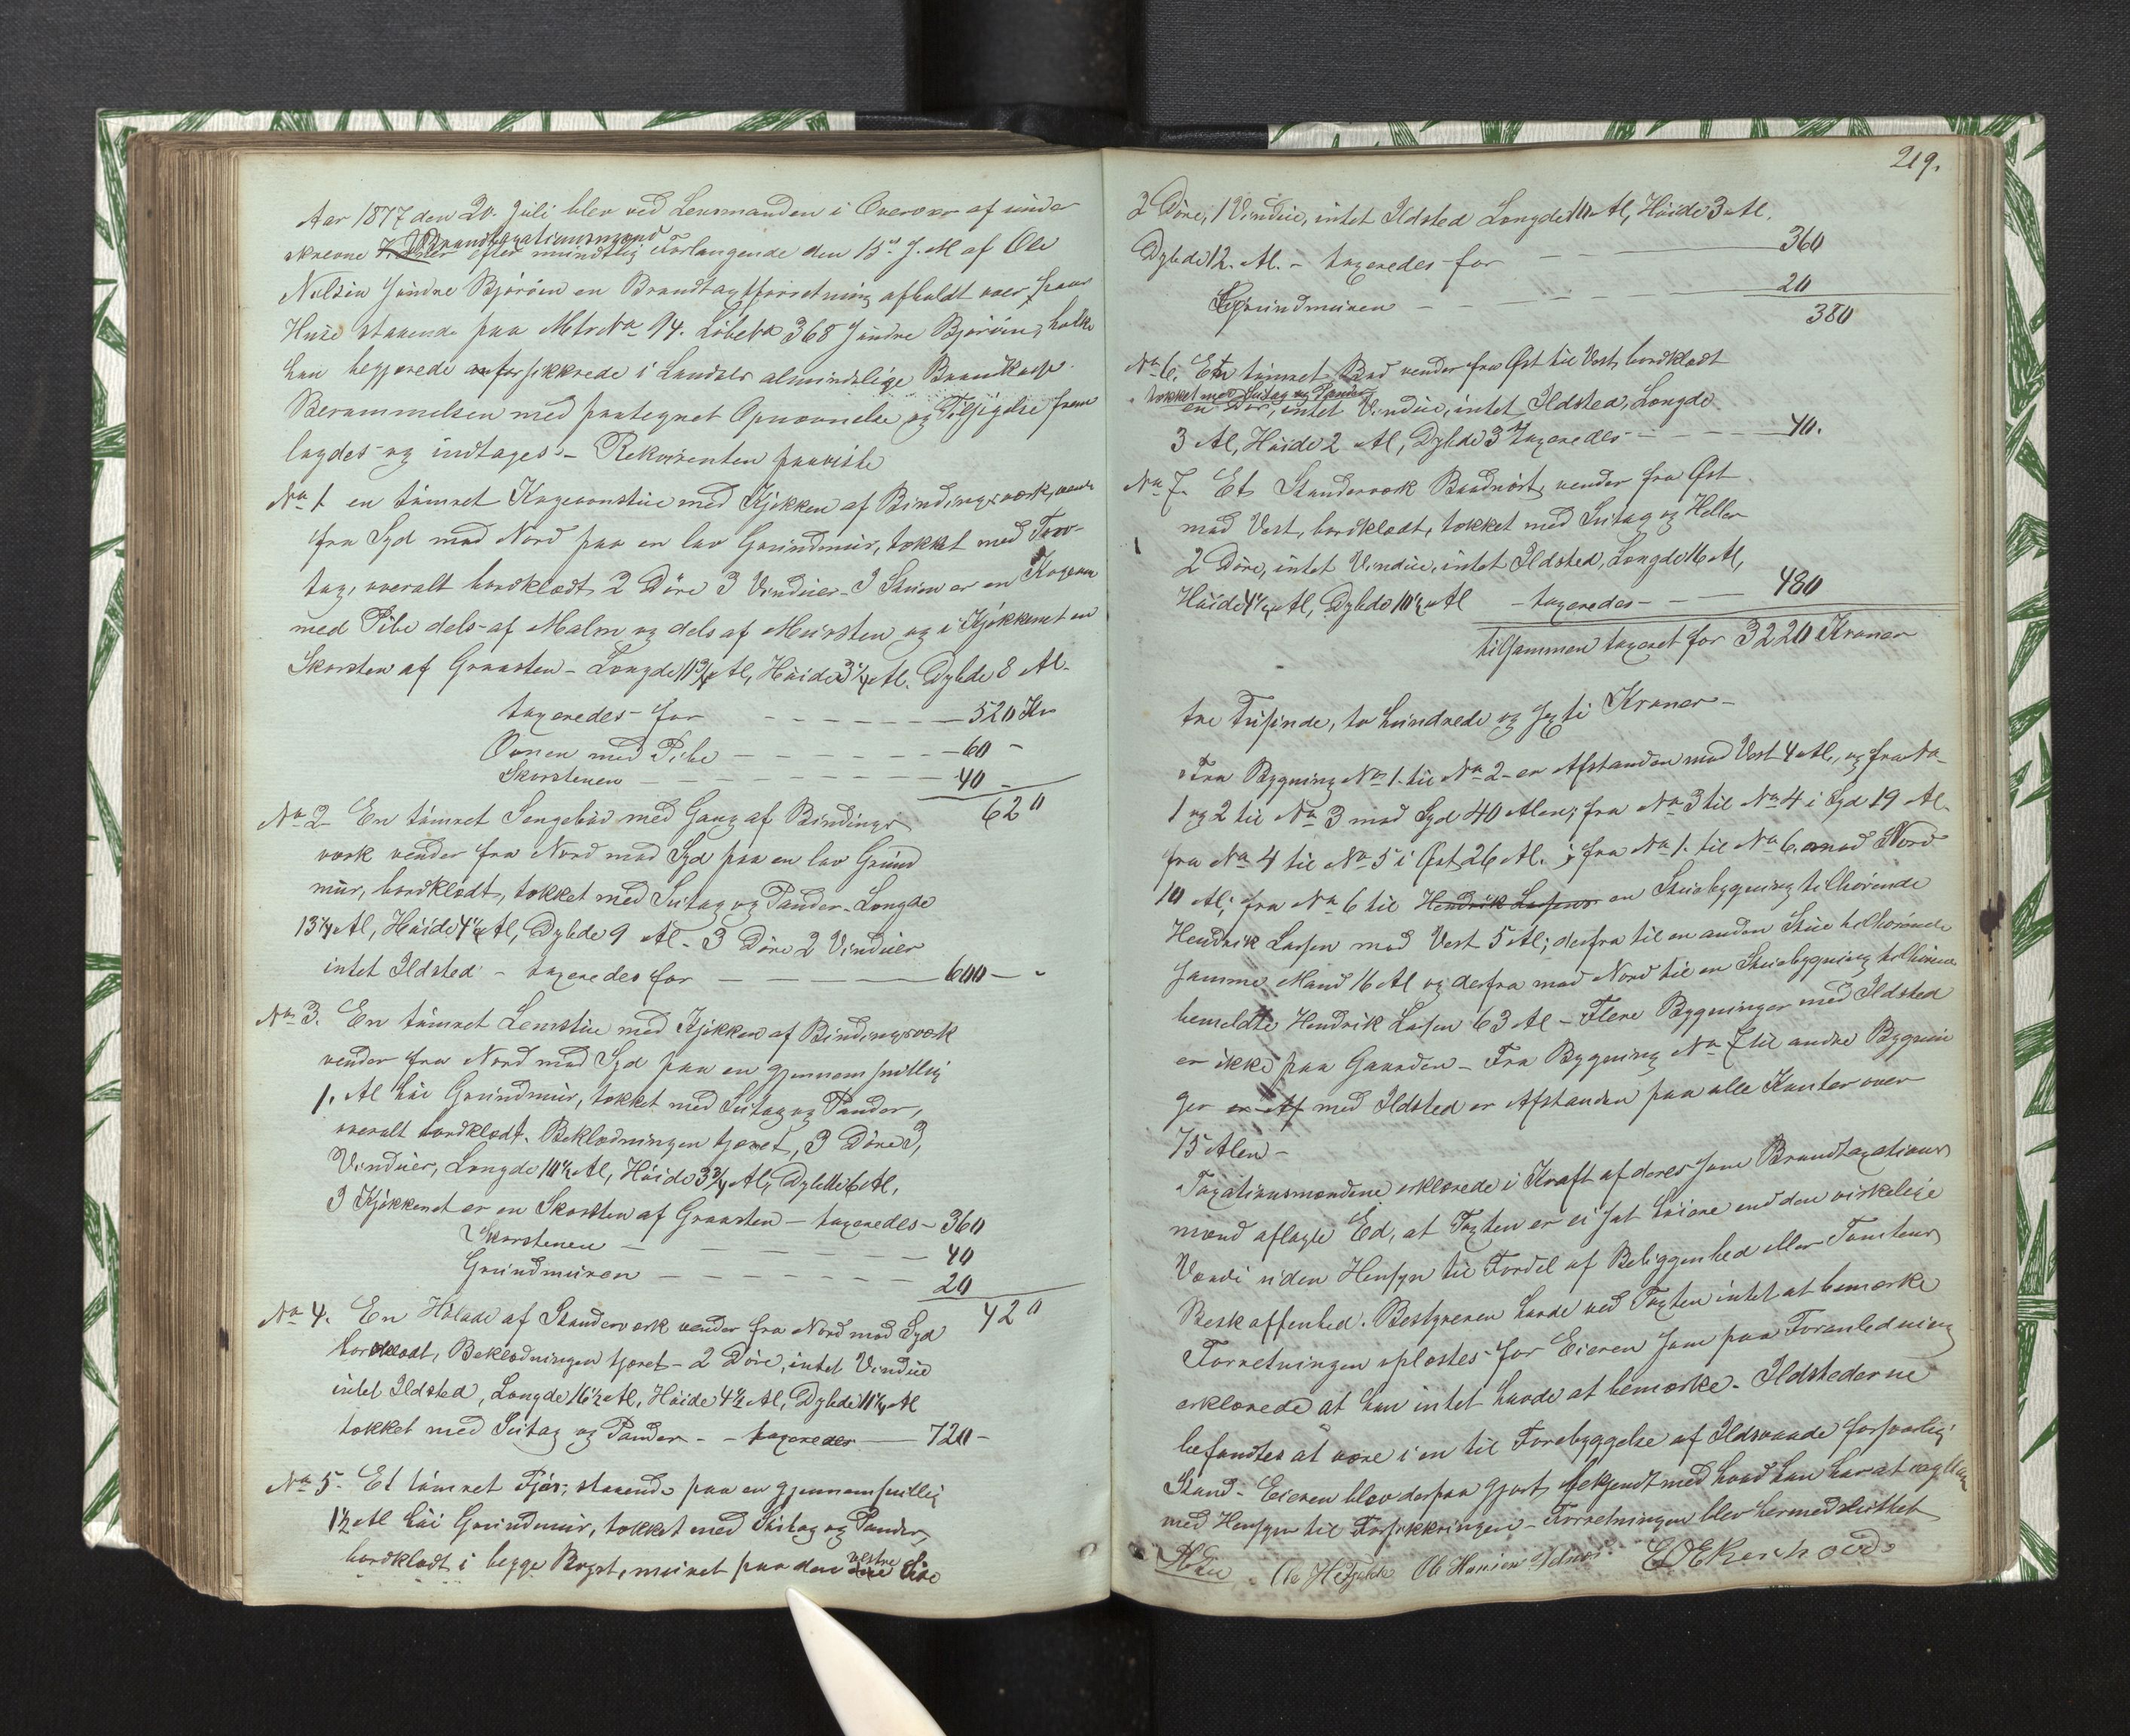 Aar 1877 den 20. Juli blev ved Lensmanden i Overvær af under
skrevne Brandtaxationsmænd efter mundtlig Forlangende den 15de J. M af Ole
Nilsen Indre Björöen en Brandtaxtforretning afholdt over hans
Huse staaende paa Mtr No 94. Löbe No 368 Indre Björöen, hvilke
han begjærede forsikkrede i Landets almindelige Brandkasse.
Berammelsen med paategnet Opnævnelse og Tilsigelse frem
lagdes og indtages. – Rekvirenten paaviste
No 1 en tömret Kageovnstue med Kjökken af Bindingsværk, vender
fra Syd mod Nord paa en lav Grundmur, tækket med Torv-
tag, overalt bordklædt 2 Döre 3 Vinduer – I Stuen er en Kageovn
med Pibe dels af Malm og dels af Mursten og i Kjökkenet en
Skorsten af Graasten – Længde 11 3/4 Al, Höide 3 1/4 Al. Dybde 8 Al.
taxeredes for – – – 520 Kr
Ovnen med Pibe – – – 60 –
Skorstenen – – – 40 –
620
No 2 En tömret Sengebod med Gang af Bindings
værk vender fra Nord mod Syd paa en lav Grund
mur, bordklædt, tækket med Sutag og Pander. Længde
13 1/4 Al, Höide 4 1/4 Al, Dybde 9 Al – 3 Döre 2 Vinduer
intet Ildsted – taxeredes for – – – 600 –
No 3. En tömret Lemstue med Kjökken af Bindingsværk
vender fra Nord mod Syd paa en gjennemsnittlig
1. Al höi Grundmur, tækket med Sutag og Pander,
overalt bordklædt. Beklædningen tjæret, 3 Döre 3,
Vinduer, Længde 10 1/2 Al, Höide 3 3/4 Al, Dybde 6 Al,
I Kjökkenet er en Skorsten af Graasten – taxeredes – 360
Skorstenen – – – 40
Grundmuren – – – 20
420
No 4. En Hölade af Standerværk vender fra Nord mod Syd
bordklædt, Beklædningen tjæret – 2 Döre, intet Vindue
intet Ildsted, Længde 16 1/2 Al, Höide 4 1/2 Al, Dybde 11 1/4 Al
tækket med Sutag og Pander – – taxeredes – 720 –
No 5. Et tömret Fjös, staaende paa en gjennemsnittlig
1 1/2 Al höi Grundmur, tækket med Sutag og Pander,
bordklædt i begge Bryst, muret paa den vestre Side
219.
2 Döre, 1 Vindue, intet Ildsted Længde 10 Al, Höide 3 Al.
Dybde 12. Al. – taxeredes for – – 360
Grundmuren – – – 20
380
No 6. En tömret Bod vender fra Øst til Vest, bordklædt
tækket med Sutag og Pander
en Dör, intet Vindue, intet Ildsted, Længde
3 Al, Höide 2 Al, Dybde 3 taxeredes – – – 40.
No 7. Et Standerværk Baadnöst, vender fra Øst
mod Vest, bordklædt, tækket med Sutag og Heller
2 Döre, intet Vindue, intet Ildsted, Længde 16 Al,
Höide 4 1/4 Al, Dybde 10 1/2 Al – taxeredes – – 480
tilsammen taxeret for 3220 Kroner
tre Tusinde, to hundrede og ti Kroner –
Fra Bygning No 1. til No 2 er Afstanden mod Vest 4 Al, og fra No
1 og 2 til No 3 mod Syd 40 Alen; fra No 3 til No 4 i Syd 19 Al.
fra No 4 til No 5 i Øst 26 Al. ; fra No 1. til No 6. mod Nord
10 Al; fra No 6 til Hendrik Lassens en Stuebygning tilhörende
Hendrik Lassen mod Vest 5 Al; derfra til en anden Stue tilhörende
samme Mand 16 Al og derfra mod Nord til en Stuebygning tilhörende
bemeldte Hendrik Lassen 63 Al – Flere Bygninger med Ildsted
er ikke paa Gaarden – Fra Bygning No 7 til andre Bygnin
ger er Af med Ildsted er Afstanden paa alle Kanter over
75 Alen –
Taxationsmændene erklærede i Kraft af deres som Brandtaxations
mænd aflagte Ed, at Taxten er ei sat höiere end den virkelige
Værdi uden Hensyn til Fordel af Beliggenhed eller Tomtens
Beskaffenhed. Bestyreren havde ved Taxten intet at bemærke
Forretningen oplæstes for Eieren som paa Foranledning
erklærede at han intet havde at bemærke – Ildstederne
befandtes at være i en til Forebyggelse af Ildsvaade forsvarlig
Stand – Eieren blev derpaa gjort bekjendt med hvad han har at iagttage
med Hensyn til Forsikkringen – Forretningen blev hermed sluttet
Ole Hansen